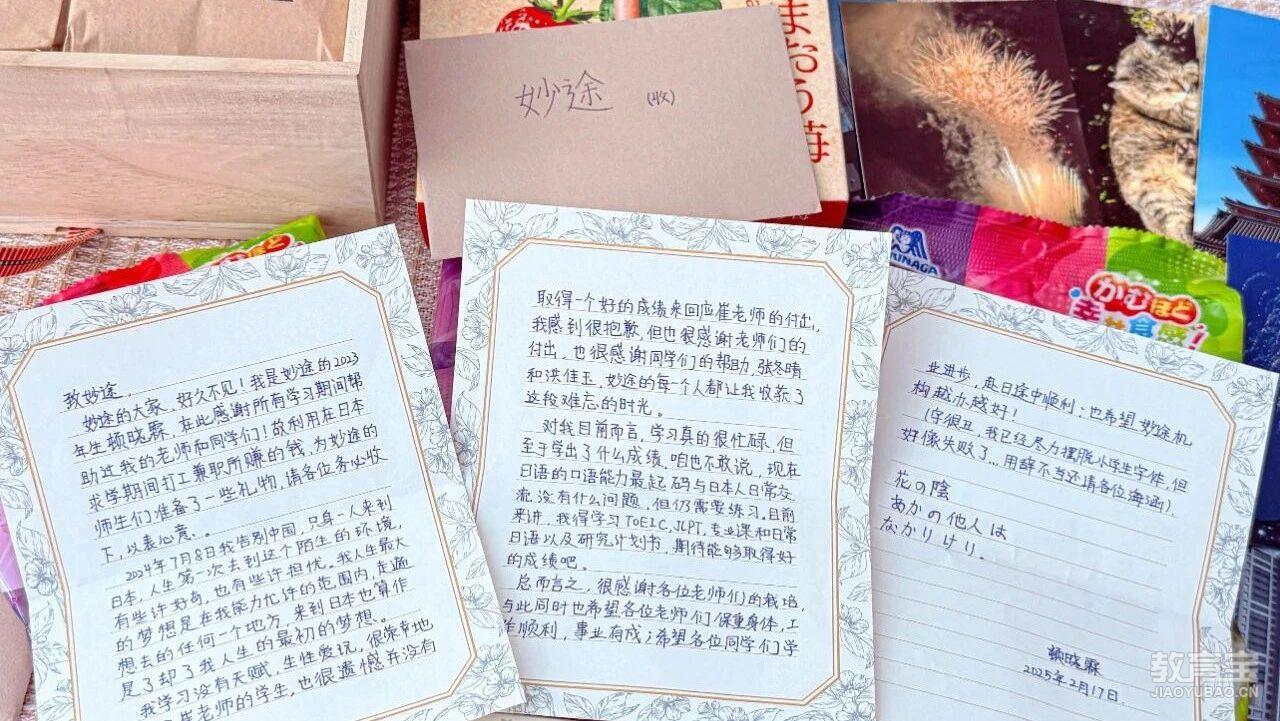 まおう苺
妙途 (收)
MORINAGA
かむほど
幸せ食感!
致妙途，
妙途的大家，好久不见！我是妙途的2023
年生顿晓霖，在此感谢所有学习期间帮
助过我的老师和同学们！故利用在日本
求学期间打工兼职所赚的钱，为妙途的
师生们准备了一些礼物，请各位务必收
下，以表心意。
2024年7月8日我告别中国，只身一人来到
日本，人生第一次去到这个陌生的环境，
有些许好奇，也有些许担忧。我人生最大
的梦想是在我能力允许的范围内，走遍
想去的任何一个地方，来到日本也算作
是了却了我人生的最初的梦想。
我学习没有天赋，生性爱玩，很荣幸地
崔老师的学生，也很遗憾并没有
取得一个好的成绩来回应崔老师的付出，
我感到很抱歉，但也很感谢老师们的
付出，也很感谢同学们的帮助，张冬晴
和洪佳玉，妙途的每个人都让我收获了
这段难忘的时光。
对我目前而言，学习真的很忙碌，但
至于学出了什么成绩，咱也不敢说，现在
日语的口语能力最起码与日本人日常交
流没有什么问题，但仍需要练习。目前
来讲，我得学习TOEIC,JLPT,专业课和日常
日语以及研究计划书，期待能够取得好
的成绩吧。
总而言之，很感谢各位老师们的栽培，
与此同时也希望各位老师们保重身体，工
作顺利，事业有成；希望各位同学们学
业进步，赴日途中顺利；也希望妙途机
构越办越好！
(字很丑，我已经尽力摆脱小学生字体，但
好像失败了…用辞不当还请各位海涵)
花の陰
あかの他人は
なかりけり。
顿晓霖
2025年2月17日.
教育宝
JIAOYUBAO.CN